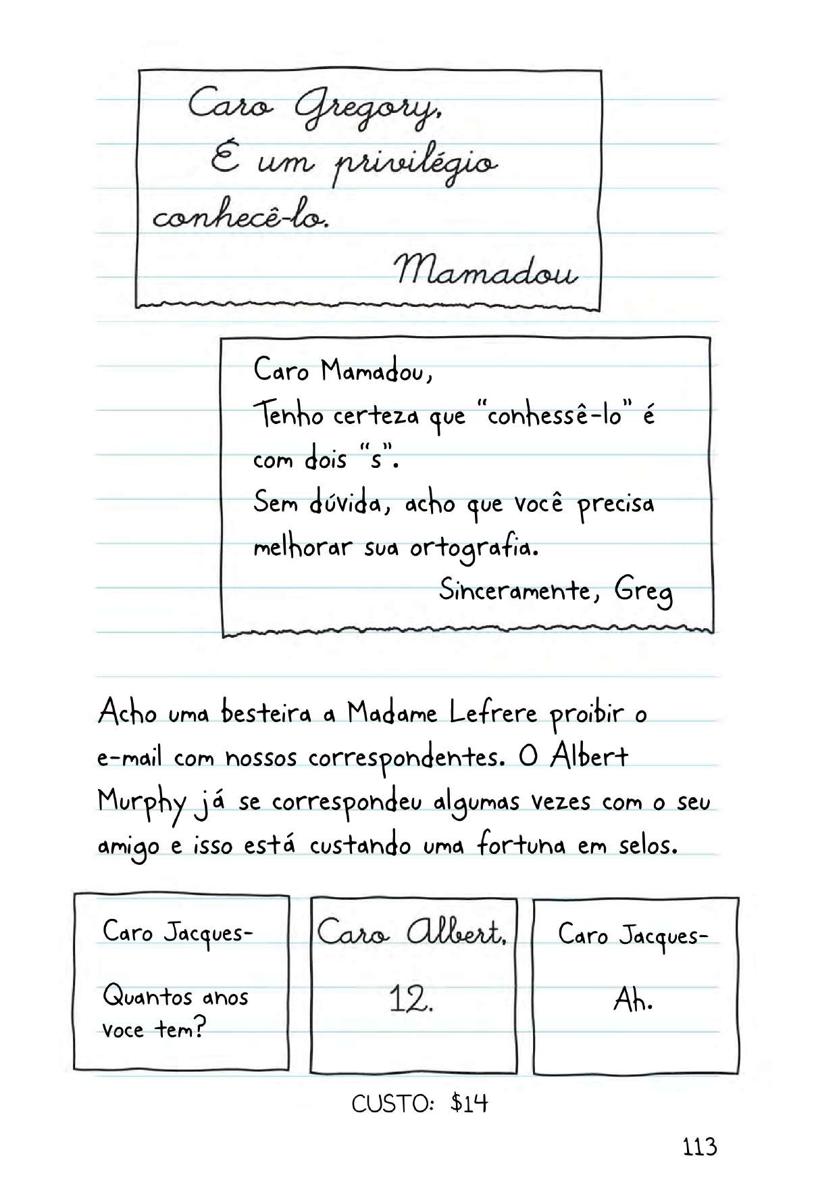 Caro Gregory,
É um privilégio
conhecê-lo.
Mamadou
Caro Mamadou,
Tenho certeza que "conhessê-lo" é
com dois "s".
Sem dúvida, acho que você precisa
melhorar sua ortografia.
Sinceramente, Greg
Acho uma besteira a Madame Lefrere proibir o
e-mail com nossos correspondentes. O Albert
Murphy já se correspondeu algumas vezes com o seu
amigo e isso está custando uma fortuna em selos.
Caro Jacques-
Quantos anos
voce tem?
Caro Albert,
12.
Caro Jacques-
Ah.
CUSTO: $14
113